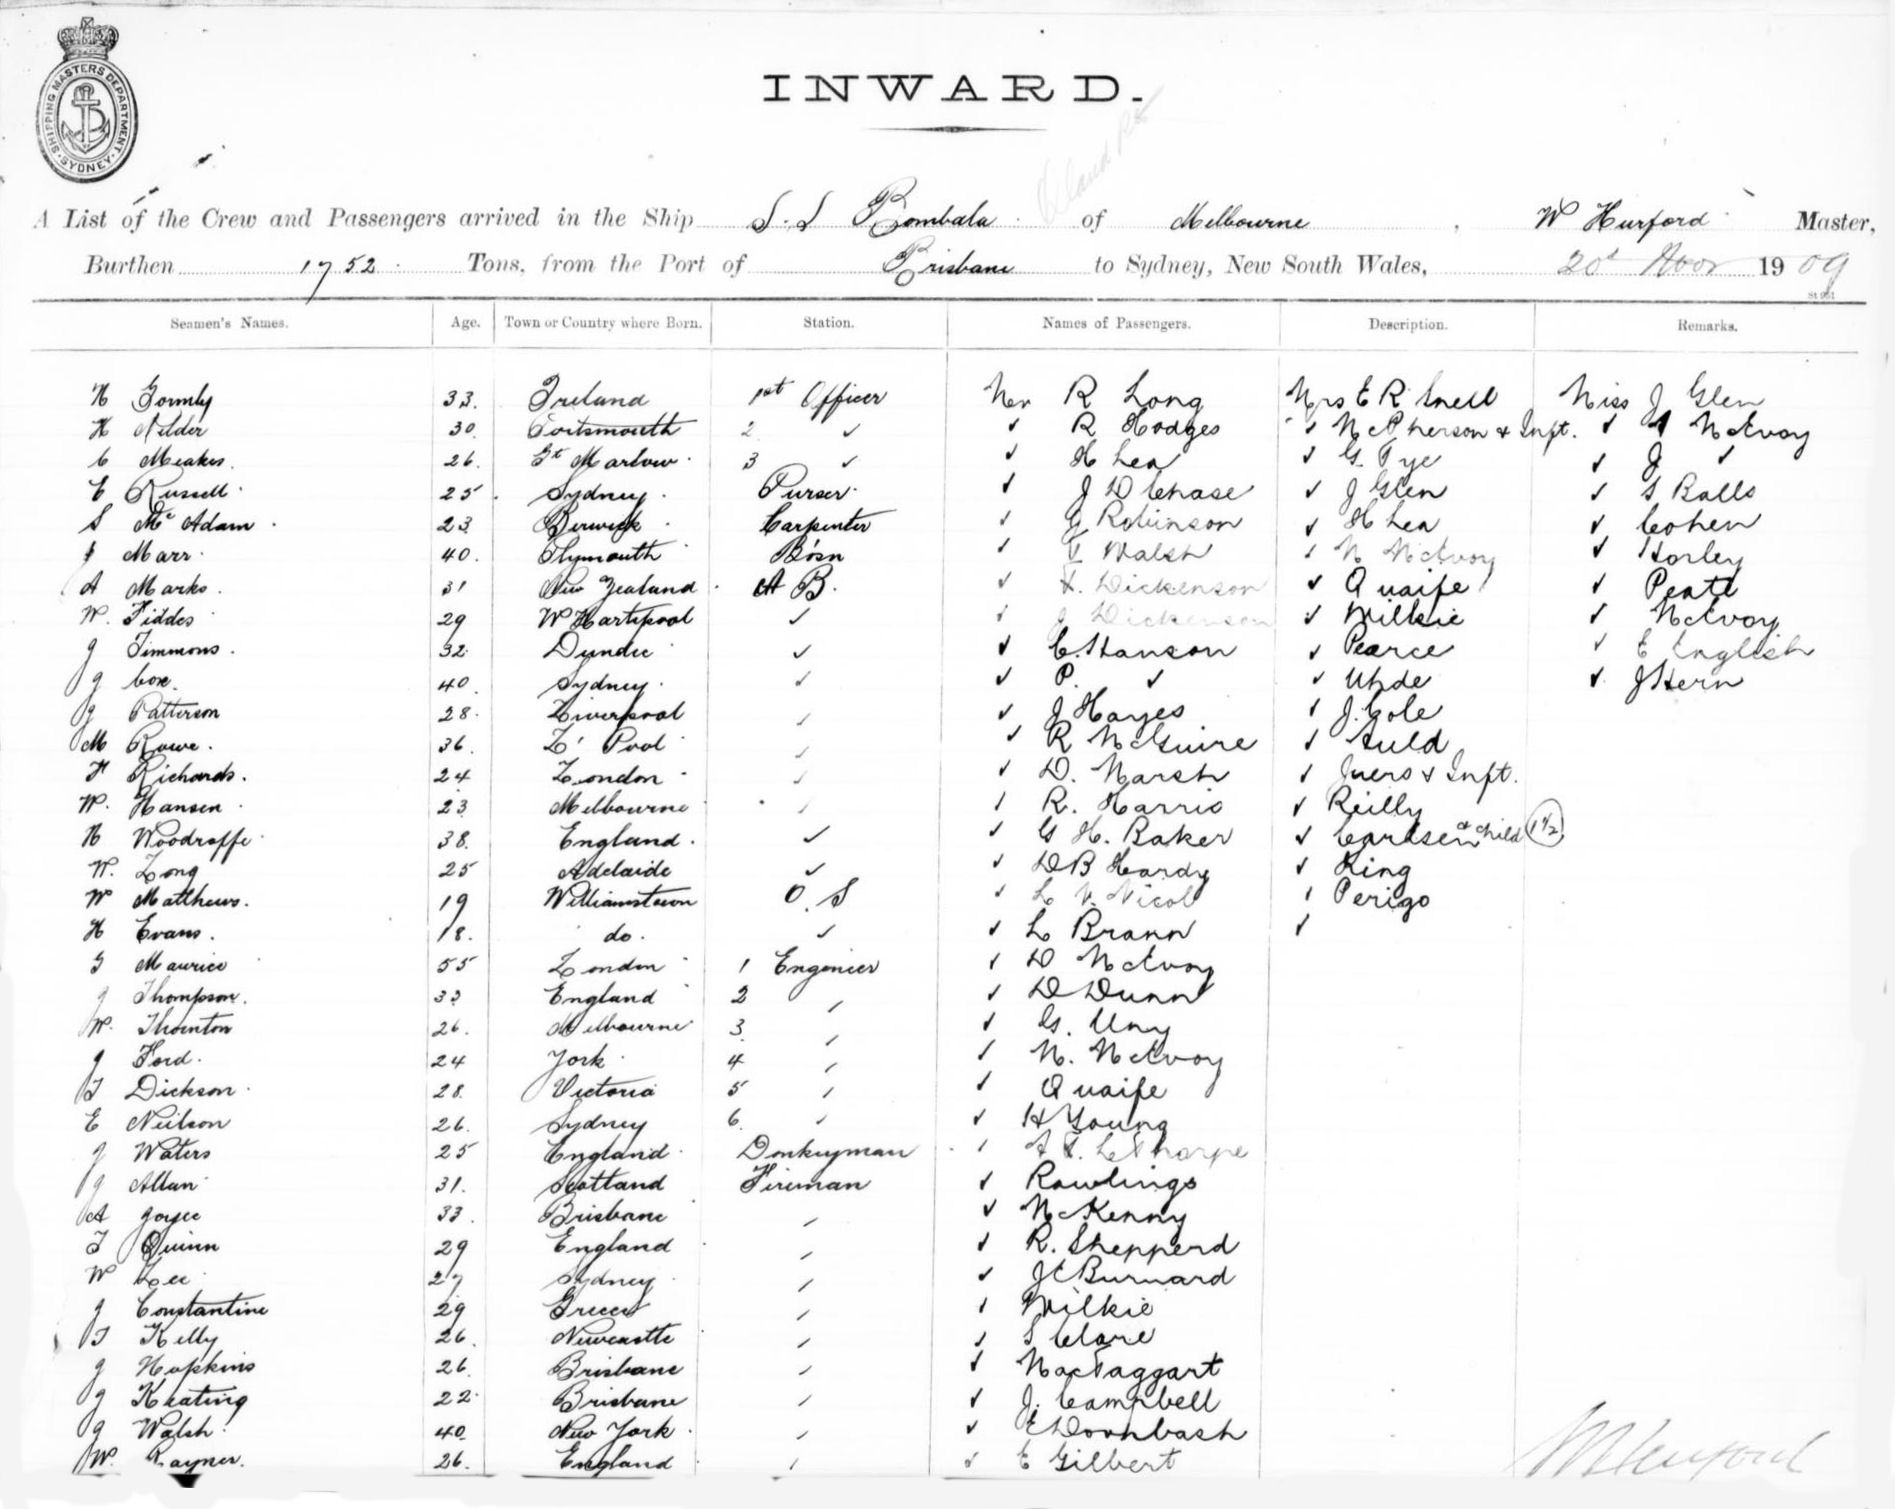 SHIPPING MASTERS DEPARTMENT · SYDNEY ·
INWARD.
A List of the Crew and Passengers arrived in the Ship S.S Bombala of Melbourne, W Hurford Master,
Burthen 1752 Tons, from the Port of Brisbane to Sydney, New South Wales, 20th Novr 1909
Seamen's Names. Age. Town or Country where Born. Station. Names of Passengers. Description. Remarks.
H Gormly 33. Ireland 1st Officer Mr R Long Mrs E R Snell Miss J Glen
H Nelder 30 Portsmouth 2 ✓ ✓ R Hodges ✓ McPherson & Inft. ✓ McEvoy
C Meakes. 26. Gt Marlow 3 ✓ ✓ H Lea ✓ G. Tye ✓ J ✓
E Russell 25. Sydney. Purser. ✓ J D Chase ✓ J Glen ✓ S Balls
S McAdam 23 Berwick Carpenter ✓ J Robinson ✓ H Lea ✓ Cohen
Marr 40. Plymouth Bosn ✓ Walsh ✓ N McEvoy ✓ Horley
A Marks. 31 New Zealand A B. ✓ Dickenson ✓ Quaife ✓ Peate
W. Fiddes 29 W Hartlepool ✓ ✓ J Dickenson ✓ Wilkie ✓ McEvoy
J Timmons. 32 Dundee ✓ ✓ C. Hanson ✓ Pearce ✓ E English
J Cox. 40. Sydney. ✓ ✓ P. ✓ ✓ Uhde ✓ J Hern
J Patterson 28. Liverpool ✓ ✓ J Hayes ✓ J. Cole
M Rowe. 36. L' Pool ✓ ✓ R McGuire ✓ Auld
F Richards. 24 London ✓ ✓ D. Marsh ✓ Juers & Inft.
W. Hansen 23 Melbourne ✓ ✓ R. Harris ✓ Reilly
H Woodroffe 38. England. ✓ ✓ G H. Baker ✓ Carlsen & child 1 1/2
W. Long 25 Adelaide ✓ ✓ D B Hardy ✓ King
W Matthews. 19 Williamstown O. S ✓ L V. Nicol ✓ Perigo
H Evans. 18. do. ✓ ✓ L Brann ✓
G Maurice 55 London 1 Engineer ✓ D McEvoy
J Thompson. 33 England 2 ✓ ✓ D Dunn
W. Thornton 26. Melbourne 3 ✓ ✓ G. Uny
J Ford. 24 York 4 ✓ ✓ N. McEvoy
T Dickson 28. Victoria 5 ✓ ✓ Quaife
E Neilson 26. Sydney 6 ✓ ✓ H Young
J Waters 25 England Donkeyman ✓ LeTharpe
J Allan 31. Scotland Fireman ✓ Rawlings
A Joyce 33. Brisbane ✓ ✓ McKenny
T Quinn 29 England ✓ ✓ R. Shepperd
W Lee 27 Sydney ✓ ✓ J C Burnard
J Constantine 29 Greece ✓ ✓ Wilkie
T Kelly 26. Newcastle ✓ ✓ S Clare
J Hopkins 26. Brisbane ✓ ✓ MacTaggart
J Keating 22. Brisbane ✓ ✓ J. Campbell
J Walsh 40 New York. ✓ ✓ E Doonbash
W. Rayner. 26. England ✓ ✓ E Gilbert
W Hurford